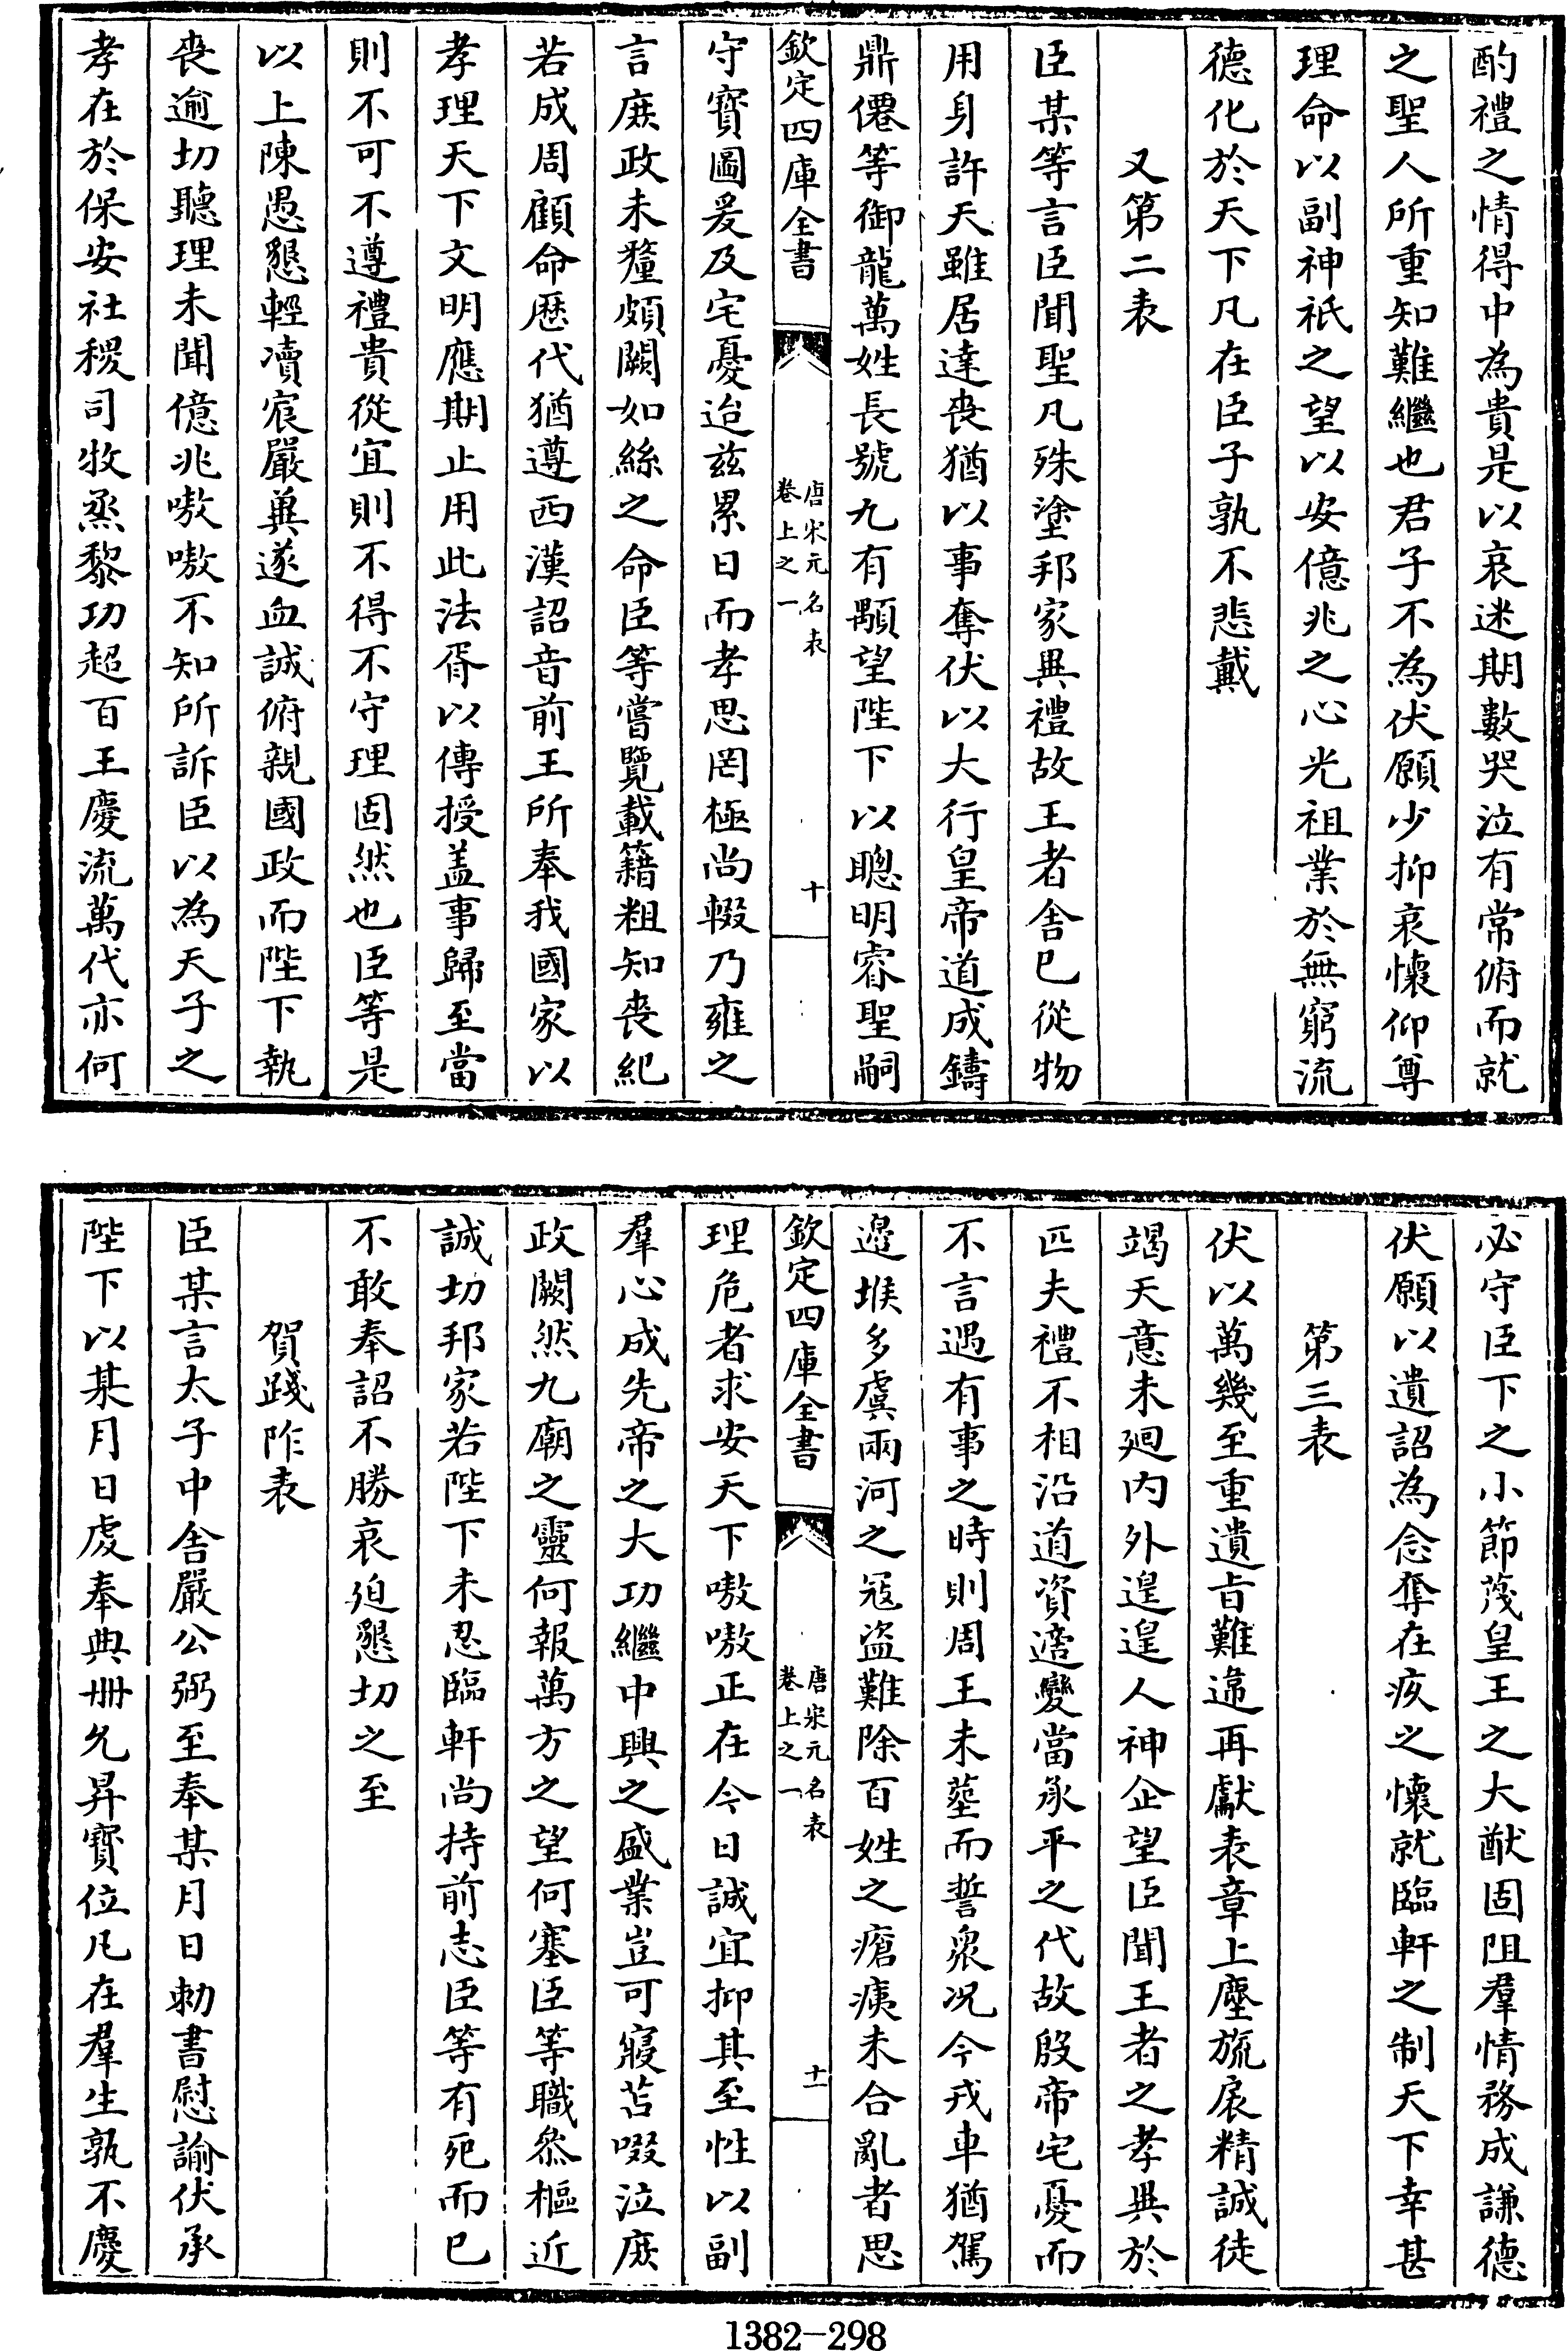 酌禮之情得中為貴是以哀迷期數哭泣有常俯而就
之聖人所重知難繼也君子不為伏願少抑哀懷仰尊
理命以副神祇之望以安億兆之心光祖業於無窮流
德化於天下凡在臣子孰不悲戴
又第二表
臣某等言臣聞聖凡殊塗邦家異禮故王者舎已從物
用身許天雖居達喪猶以事奪伏以大行皇帝道成鑄
鼎僊等御龍萬姓長號九有顒望陛下以聰明睿聖嗣
欽定四庫全書
唐宋元名表
卷上之一
十
守寶圖爰及宅憂迨兹累日而孝思罔極尚輟乃雍之
言庻政未釐頗闕如絲之命臣等嘗覽載籍粗知喪紀
若成周顧命歴代猶遵西漢詔音前王所奉我國家以
孝理天下文明應期止用此法胥以傳授盖事歸至當
則不可不遵禮貴從宜則不得不守理固然也臣等是
以上陳愚懇輕凟宸嚴冀遂血誠俯親國政而陛下執
喪逾切聽理未聞億兆嗷嗷不知所訴臣以為天子之
孝在於保安社稷司牧烝黎功超百王慶流萬代亦何
必守臣下之小節蔑皇王之大猷固阻羣情務成謙德
伏願以遺詔為念奪在疚之懷就臨軒之制天下幸甚
第三表
伏以萬幾至重遺㫖難違再獻表章上塵旒扆精誠徒
竭天意未廻内外遑遑人神企望臣聞王者之孝異於
匹夫禮不相沿道資適變當承平之代故殷帝宅憂而
不言遇有事之時則周王未塟而誓衆况今戎車猶駕
邉堠多虞兩河之冦盗難除百姓之瘡痍未合亂者思
欽定四庫全書
唐宋元名表
卷上之一
十一
理危者求安天下嗷嗷正在今日誠宜抑其至性以副
羣心成先帝之大功繼中興之盛業豈可寢苫啜泣庻
政闕然九廟之靈何報萬方之望何塞臣等職叅樞近
誠切邦家若陛下未忍臨軒尚持前志臣等有死而已
不敢奉詔不勝哀迫懇切之至
賀踐阼表
臣某言太子中舎嚴公弼至奉某月日勅書慰諭伏承
陛下以某月日䖍奉典册允昇寳位凡在羣生孰不慶
1382-298